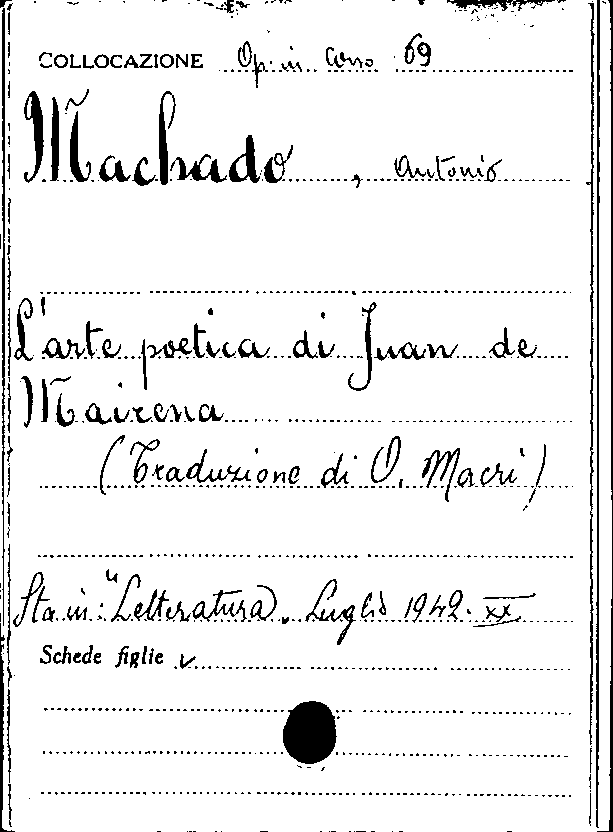 COLLOCAZIONE Op. in Corso 69
Machado, Antonio
L'arte poetica di Juan de
Mairena
(Traduzione di O. Macrì)
Sta in: "Letteratura". Luglio 1942. XX
Schede figlie ✓